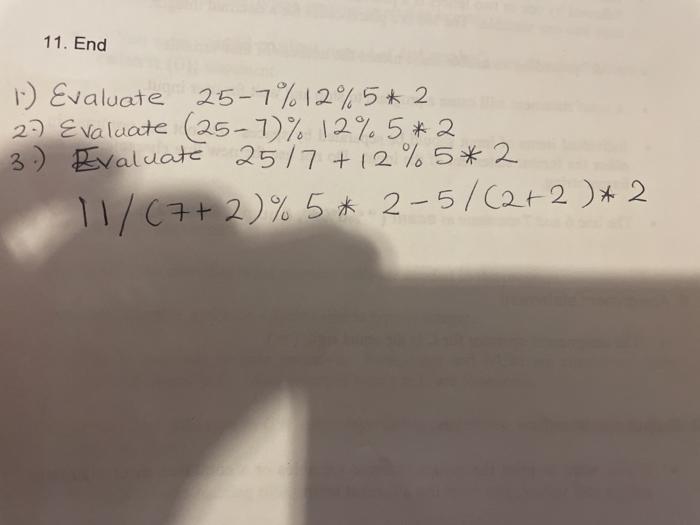 11. End
1.) Evaluate 25-7%12%5*2
2.) Evaluate (25-7)%12%5*2
3.) Evaluate 25/7+12%5*2
11/(7+2)%5*2-5/(2+2)*2